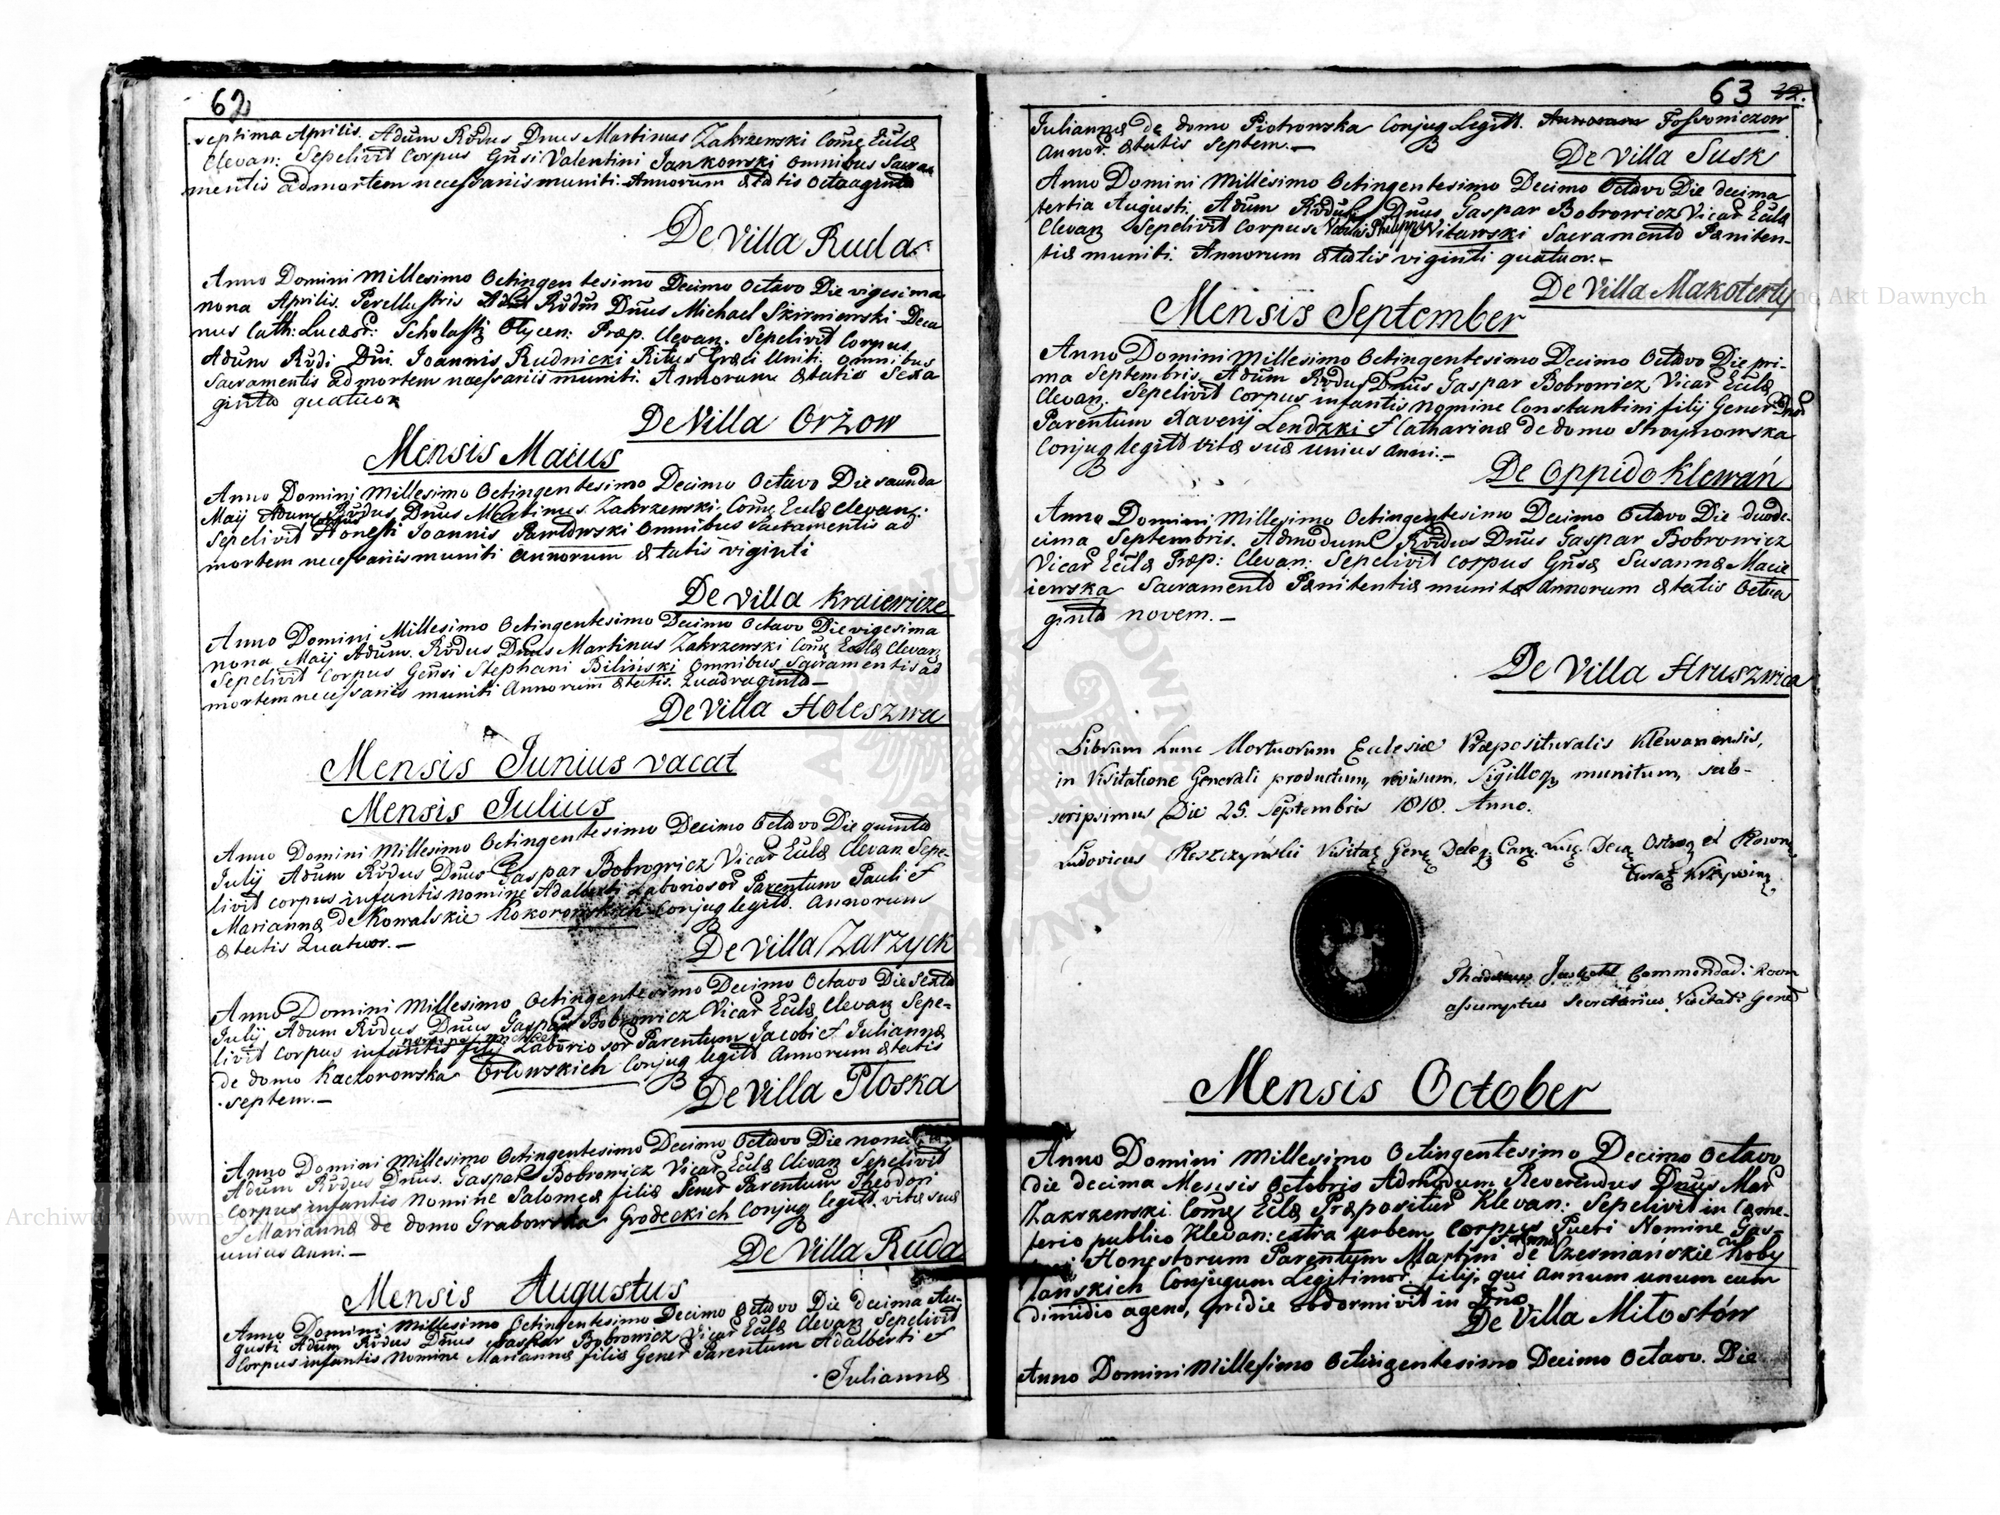 62
septima Aprilis. Adum Rvdus Dnus Martinus Zakrzewski Come Eccla
Clevan: Sepelivit Corpus Gnsi Valentini Jankowski omnibus Sacra
mentis ad mortem necessariis muniti. Annorum ætatis Octoaginta
De Villa Ruda.
Anno Domini Millesimo Octingentesimo Decimo Octavo Die vigesima
nona Aprilis. Perellustris Rvdus Dnus Michael Skirniewski Deca
nus Cath: Luceor: Scholasti Olycen: Præp. Clevan. Sepelivit Corpus
Adum Rvdi Dni Joannis Rudnicki Ritus Græci Uniti. omnibus
Sacramentis ad mortem necessariis muniti. Annorum ætatis Sexa
ginta quatuor
De Villa Orżow
Mensis Maius
Anno Domini Millesimo Octingentesimo Decimo Octavo Die secunda
Maij Adum Rvdus Dnus Martinus Zakrzewski Come Eccla Clevan:
Sepelivit Corpus Honesti Joannis Pawłowski omnibus Sacramentis ad
mortem necessariis muniti Annorum ætatis viginti
De Villa Kraiewicze
Anno Domini Millesimo Octingentesimo Decimo Octavo Die vigesima
nona Maij Adum. Rvdus Dnus Martinus Zakrzewski Come Eccla Clevan
Sepelivit Corpus Gensi Stephani Biliński omnibus sacramentis ad
mortem necessariis muniti Annorum ætatis. Quadraginta—
De Villa Holeszwa
Mensis Junius vacat
Mensis Julius
Anno Domini Millesimo Octingentesimo Decimo Octavo Die quinta
July Adum Rvdus Dnus Gaspar Bobrowicz Vicar Eccla Clevan Sepe-
livit Corpus infantis nomine Adalberti Laboriosor Parentum Pauli et
Mariannæ de Kowalskie Kokorowskich Conjug legitt. Annorum
ætatis Quatuor.—
De Villa Zarzyck
Anno Domini Millesimo Octingentesimo Decimo Octavo Die Sexta
July Adum Rvdus Dnus Gaspar Bobrowicz Vicar Eccla Clevan Sepe-
livit Corpus infantis filij Laboriosor Parentum Jacobi et Juliannæ
de domo Kaczorowska Orłowskich Conjug legitt Annorum ætatis
septem.—
De Villa Płoska
Anno Domini Millesimo Octingentesimo Decimo Octavo Die nona
Adum Rvdus Dnus. Gaspar Bobrowicz Vicar Eccla Clevan Sepelivit
Corpus infantis Nomine Salomeæ filiæ Gener Parentum Theodori
et Mariannæ de domo Grabowska Grodeckich Conjug legitt. vitæ suæ
unius anni.—
De Villa Ruda
Mensis Augustus
Anno Domini Millesimo Octingentesimo Decimo Octavo Die decima Au-
gusti Adum Rvdus Dnus Gaspar Bobrowicz Vicar Eccla Clevan Sepelivit
Corpus infantis Nomine Mariannæ filiæ Gener Parentum Adalberti et
Juliannæ
63
Juliannæ de domo Piotrowska Conjug legitt. Annorum Fossoniczow
Annor. ætatis Septem.—
De Villa Susk
Anno Domini Millesimo Octingentesimo Decimo Octavo Die decima
tertia Augusti. Adum Rvdus Dnus Gaspar Bobrowicz Vicar Eccla
Clevan Sepelivit Corpus Philippi Witawski Sacramento Pæniten-
tiæ muniti. Annorum ætatis viginti quatuor.—
De Villa Makoterty
Mensis September
Anno Domini Millesimo Octingentesimo Decimo Octavo Die pri-
ma Septembris. Adum Rvdus Dnus Gaspar Bobrowicz Vicar Eccla
Clevan. Sepelivit Corpus infantis nomine Constantini filij Gener
Parentum Xaverij Lendzki et Catharinæ de domo Stroynowska
Conjug legitt vitæ suæ unius anni.—
De Oppido Klewań
Anno Domini Millesimo Octingentesimo Decimo Octavo Die duode-
cima Septembris. Admodum Rvdus Dnus Gaspar Bobrowicz
Vicar Eccla Præp: Clevan: Sepelivit Corpus Gnsæ Susannæ Macie
iewska Sacramento Pænitentiæ munitæ Annorum ætatis Octua
ginta novem.—
De Villa Hruszwica
Librum hunc Mortuorum Eclesiæ Præposituralis Klewanensis,
in Visitatione Generali productum, revisum, Sigilloq munitum, sub-
scripsimus Die 25. Septembris 1818. Anno.
Ludovicus Reszczyński Visitat Gene Deleg. Can. Luc. Deca Ostrog et Rown
Curat Krzywin
Commendad: Rown
assumptus Secretarius Visitat: Gener
Mensis October
Anno Domini Millesimo Octingentesimo Decimo Octavo
die decima Mensis Octobris Admodum Reverendus Dnus Mar
Zakrzenski Come Eclæ Præpositur Klevan: Sepelivit in Cæme-
terio publico Klevan: extra urbem Corpus Pueri Nomine Gas-
pari Honestorum Parentum Martini de Czermańskie Koby
łańskich Conjugum Legitimor, filij, qui annum unum cum
dimidio agens, pridie obdormivit in Dno
De Villa Miłostów
Anno Domini Millesimo Octingentesimo Decimo Octavo. Die
Archiwum Główne Akt Dawnych